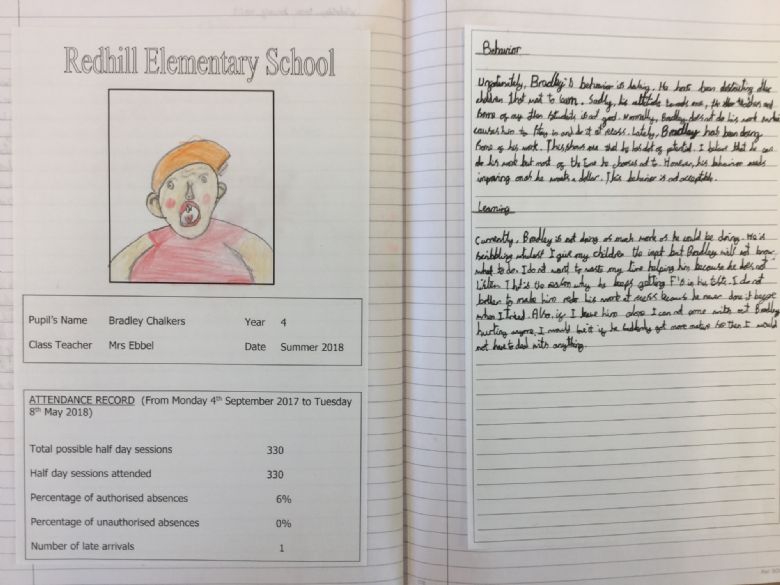 Redhill Elementary School
Pupil's Name Bradley Chalkers Year 4
Class Teacher Mrs Ebbel Date Summer 2018
ATTENDANCE RECORD (From Monday 4th September 2017 to Tuesday
8th May 2018)
Total possible half day sessions 330
Half day sessions attended 330
Percentage of authorised absences 6%
Percentage of unauthorised absences 0%
Number of late arrivals 1
Behavior
Bradley's behavior is He has been
children that want to learn. Sadly, his attitude towards me, the other teachers and
some of my other students is not good. Normally, Bradley does not do his work which
causes him to stay in and do it at recess. Lately, Bradley has been doing
some of his work. This shows me that he has lot of potential. I believe that he can
do his work but most of the time he chooses not to. However, his behaviour needs
improving he a dollar. This behavior is not acceptable.
Learning
Currently, Bradley is not doing as much work as he could be doing. He is
scribbling whilst I give my children the input but Bradley will not know
what to do. I do not want to waste my time helping him because he does not
listen. That is the reason why he keeps getting F's in his tests. I do not
bother to make him redo his work at recess because he never done it before
when I tried. Also, if I leave him alone I can not come with out Bradley
hurting anyone. I would if he suddenly got more mature then I would
not have to deal with anything.